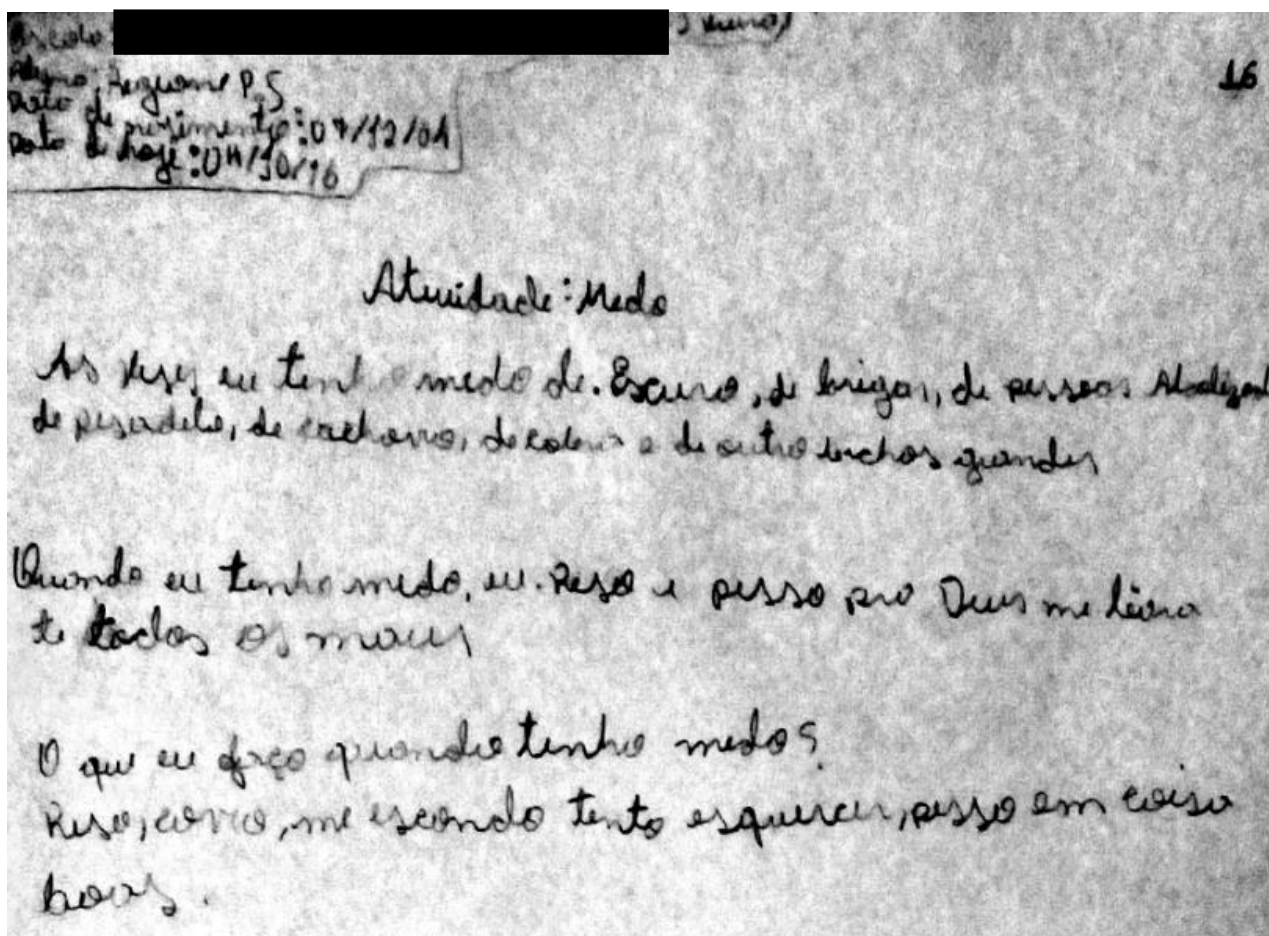 Escola:
16
Aluno: P.S
Data de nasimento: 07/12/01
Data de hoje: 04/10/16
Atividade: Medo
As veses eu tenho medo de. Escuro, de brigas, de pessoas
de pesadelo, de cachorro, de cobra e de outro bichos grandes
Quando eu tenho medo, eu. Reso e pesso pro Deus me livra
te todos os maus
O que eu faço quando tenho medo?
Reso, corro, me escondo tento esquecer, pesso em coisa
boas.